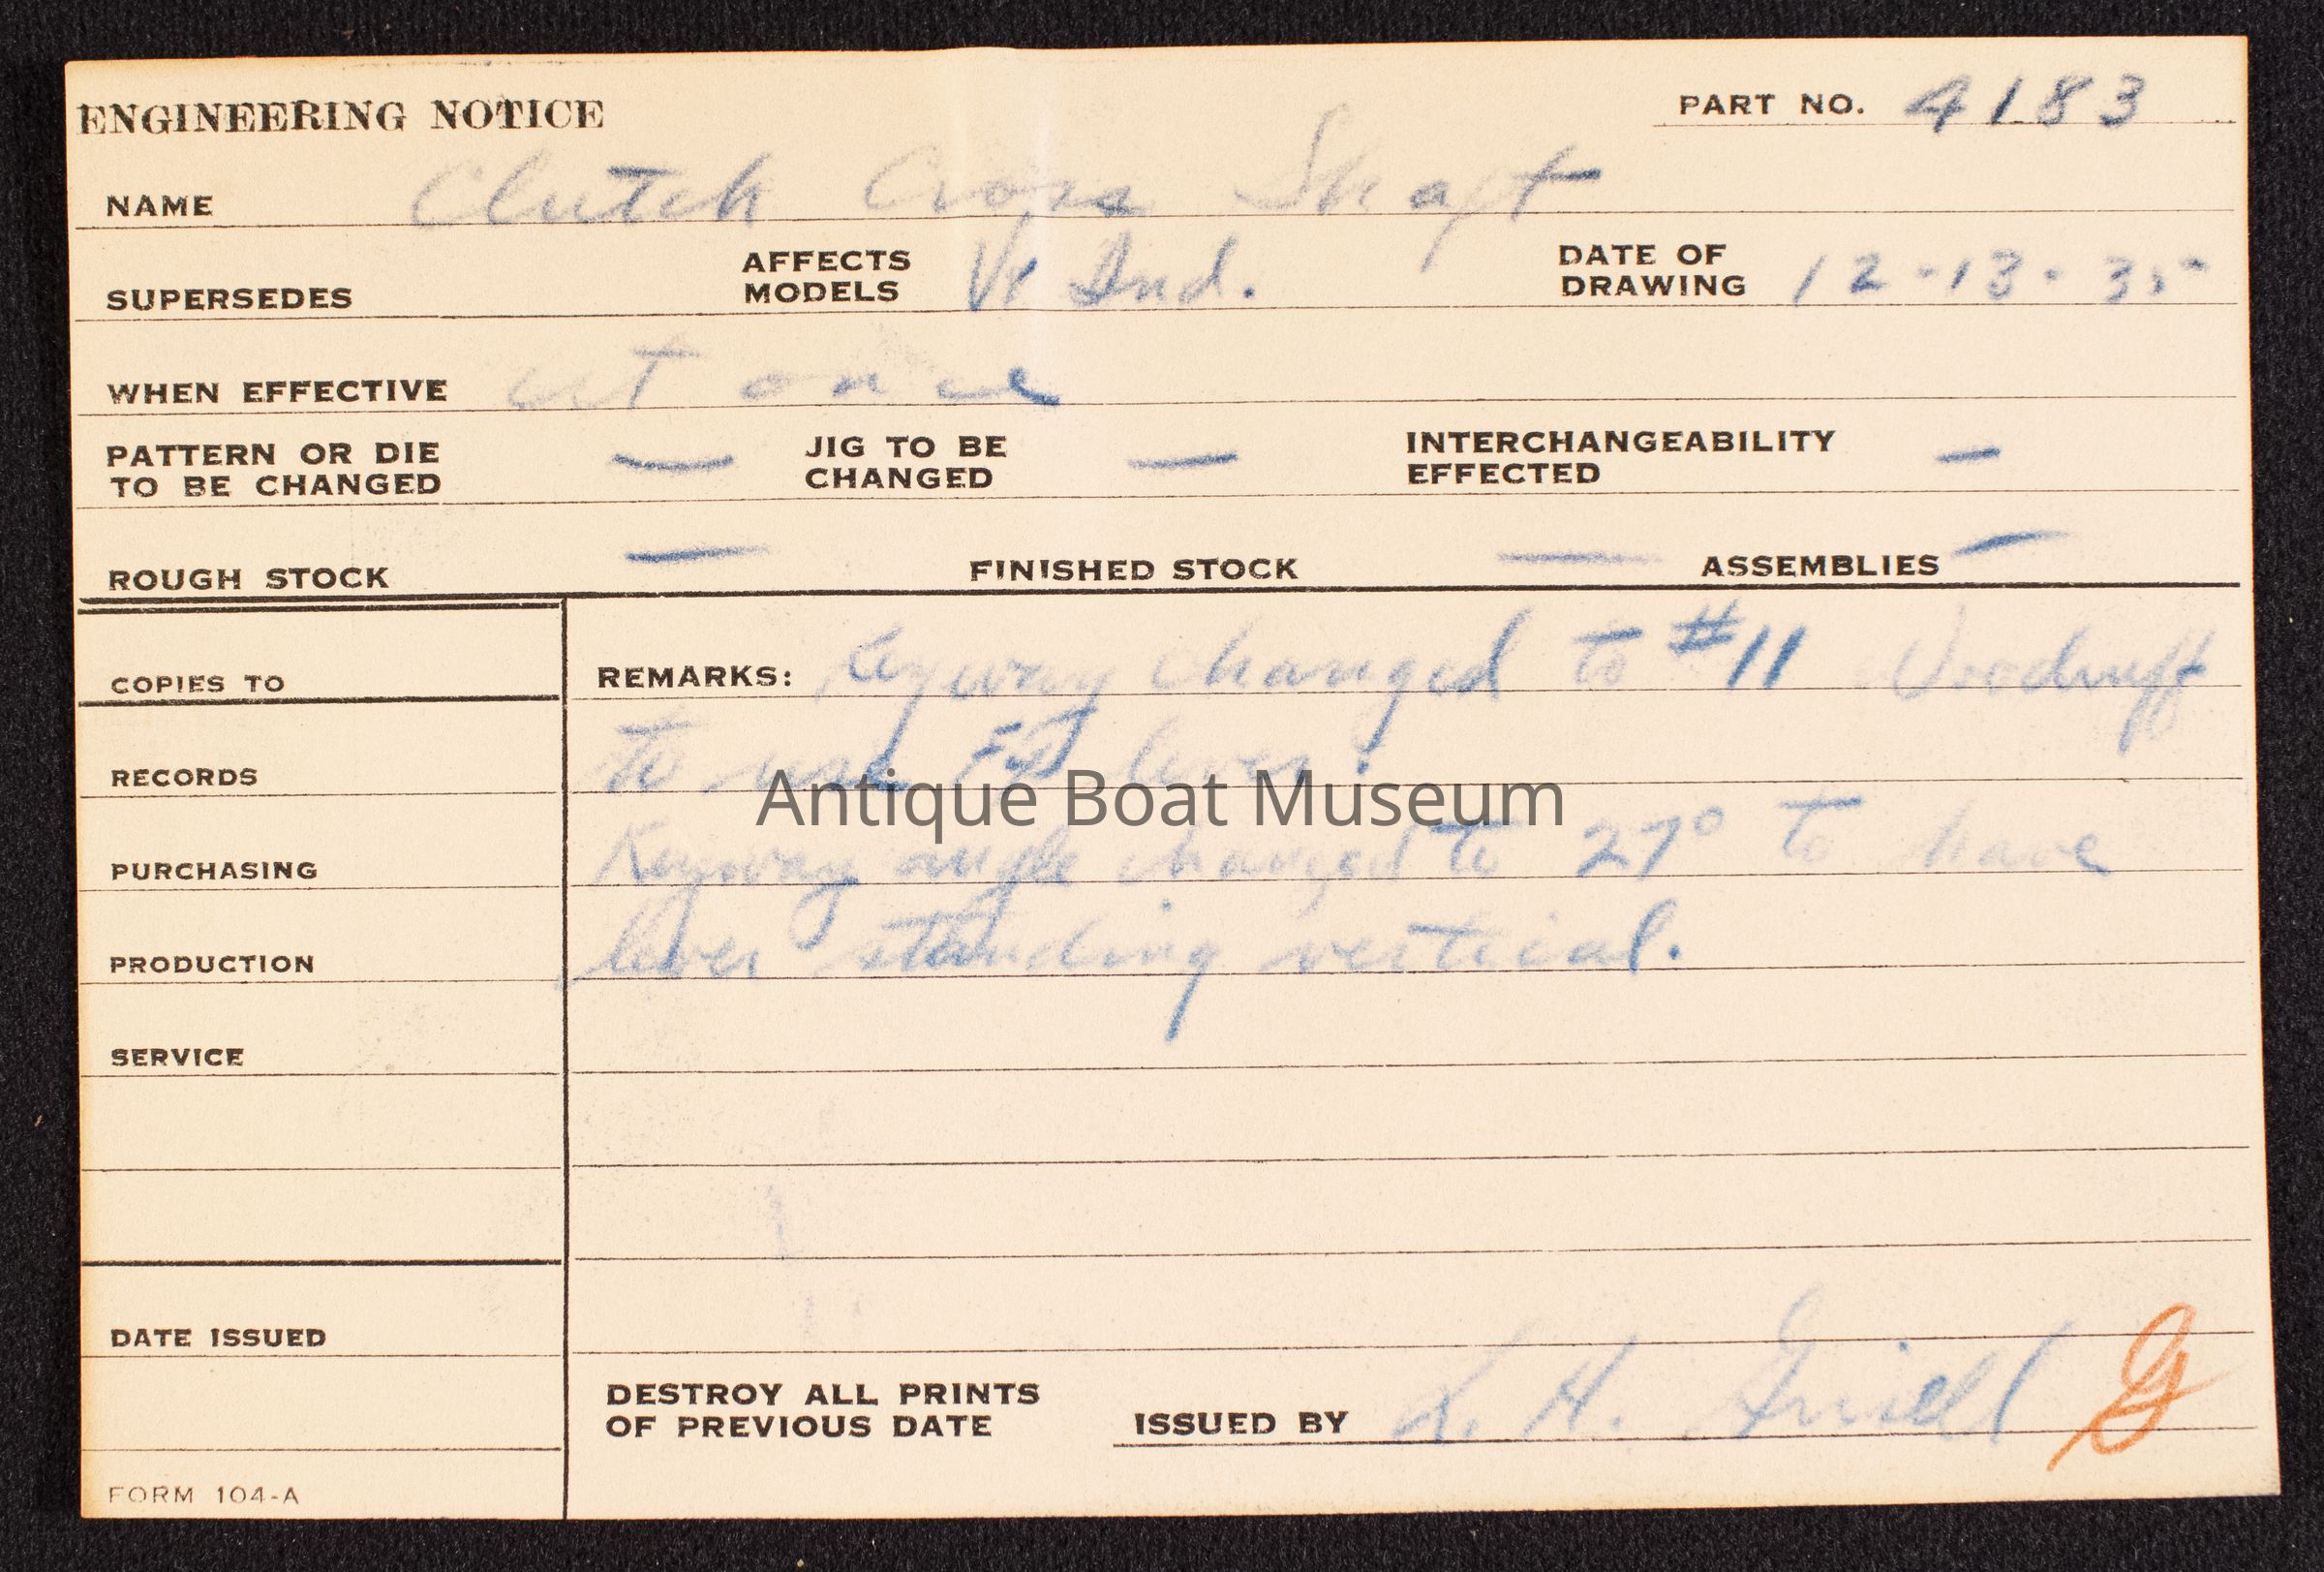 ENGINEERING NOTICE
PART NO. 4183
NAME Clutch Cross Shaft
SUPERSEDES
AFFECTS MODELS Ind.
DATE OF DRAWING 12-13-35
WHEN EFFECTIVE at once
PATTERN OR DIE TO BE CHANGED —
JIG TO BE CHANGED —
INTERCHANGEABILITY EFFECTED —
ROUGH STOCK —
FINISHED STOCK —
ASSEMBLIES —
COPIES TO
RECORDS
PURCHASING
PRODUCTION
SERVICE
DATE ISSUED
FORM 104-A
REMARKS: Keyway changed to #11 Woodruff
to use lever.
Keyway angle changed to 27° to have
lever standing vertical.
Antique Boat Museum
DESTROY ALL PRINTS
OF PREVIOUS DATE
ISSUED BY L. H.
G